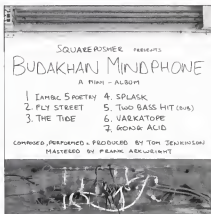 SQUAREPUSHER PRESENTS
BUDAKHAN MINDPHONE
A MINI-ALBUM
1 IAMBIC 5 POETRY
2. FLY STREET
3. THE TIDE
4. SPLASK
5. TWO BASS HIT (DUB)
6. VARKATOPE
7. GONG ACID
COMPOSED, PERFORMED & PRODUCED BY TOM JENKINSON
MASTERED BY FRANK ARKWRIGHT